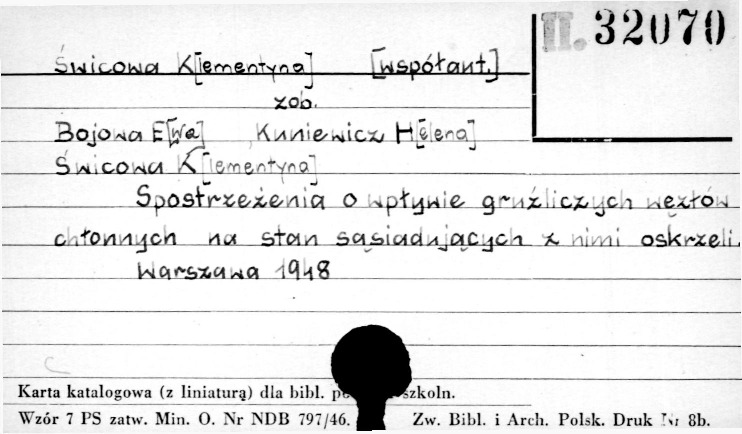 II. 32070
Świcowa K[lementyna] [współaut.]
zob.
Bojowa E[wa], Kuniewicz H[elena]
Świcowa K[lementyna]
Spostrzeżenia o wpływie gruźliczych węzłów
chłonnych na stan sąsiadujących z nimi oskrzeli.
Warszawa 1948
Karta katalogowa (z liniaturą) dla bibl. szkoln.
Wzór 7 PS zatw. Min. O. Nr NDB 797/46. Zw. Bibl. i Arch. Polsk. Druk Nr 8b.